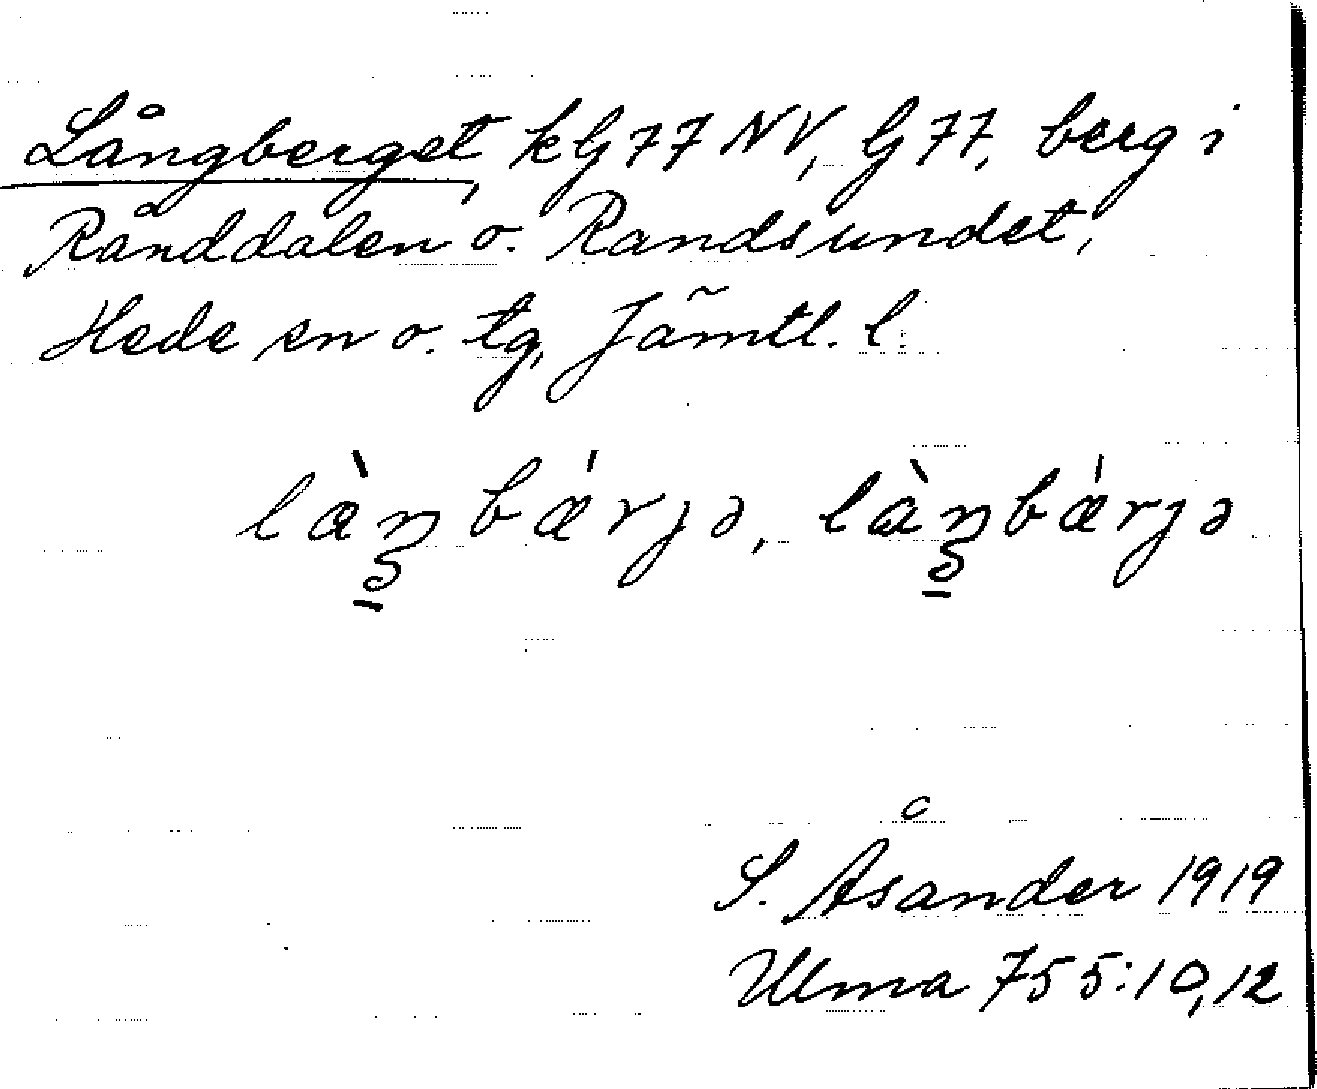 Långberget, kG 77 NV, G 77, berg i
Rånddalen o. Randsundet,
Hede sn o. tg, Jämtl. l.
làŋbǽrjə, làŋbǽrjə
S. Åsander 1919
Ulma 755:10,12